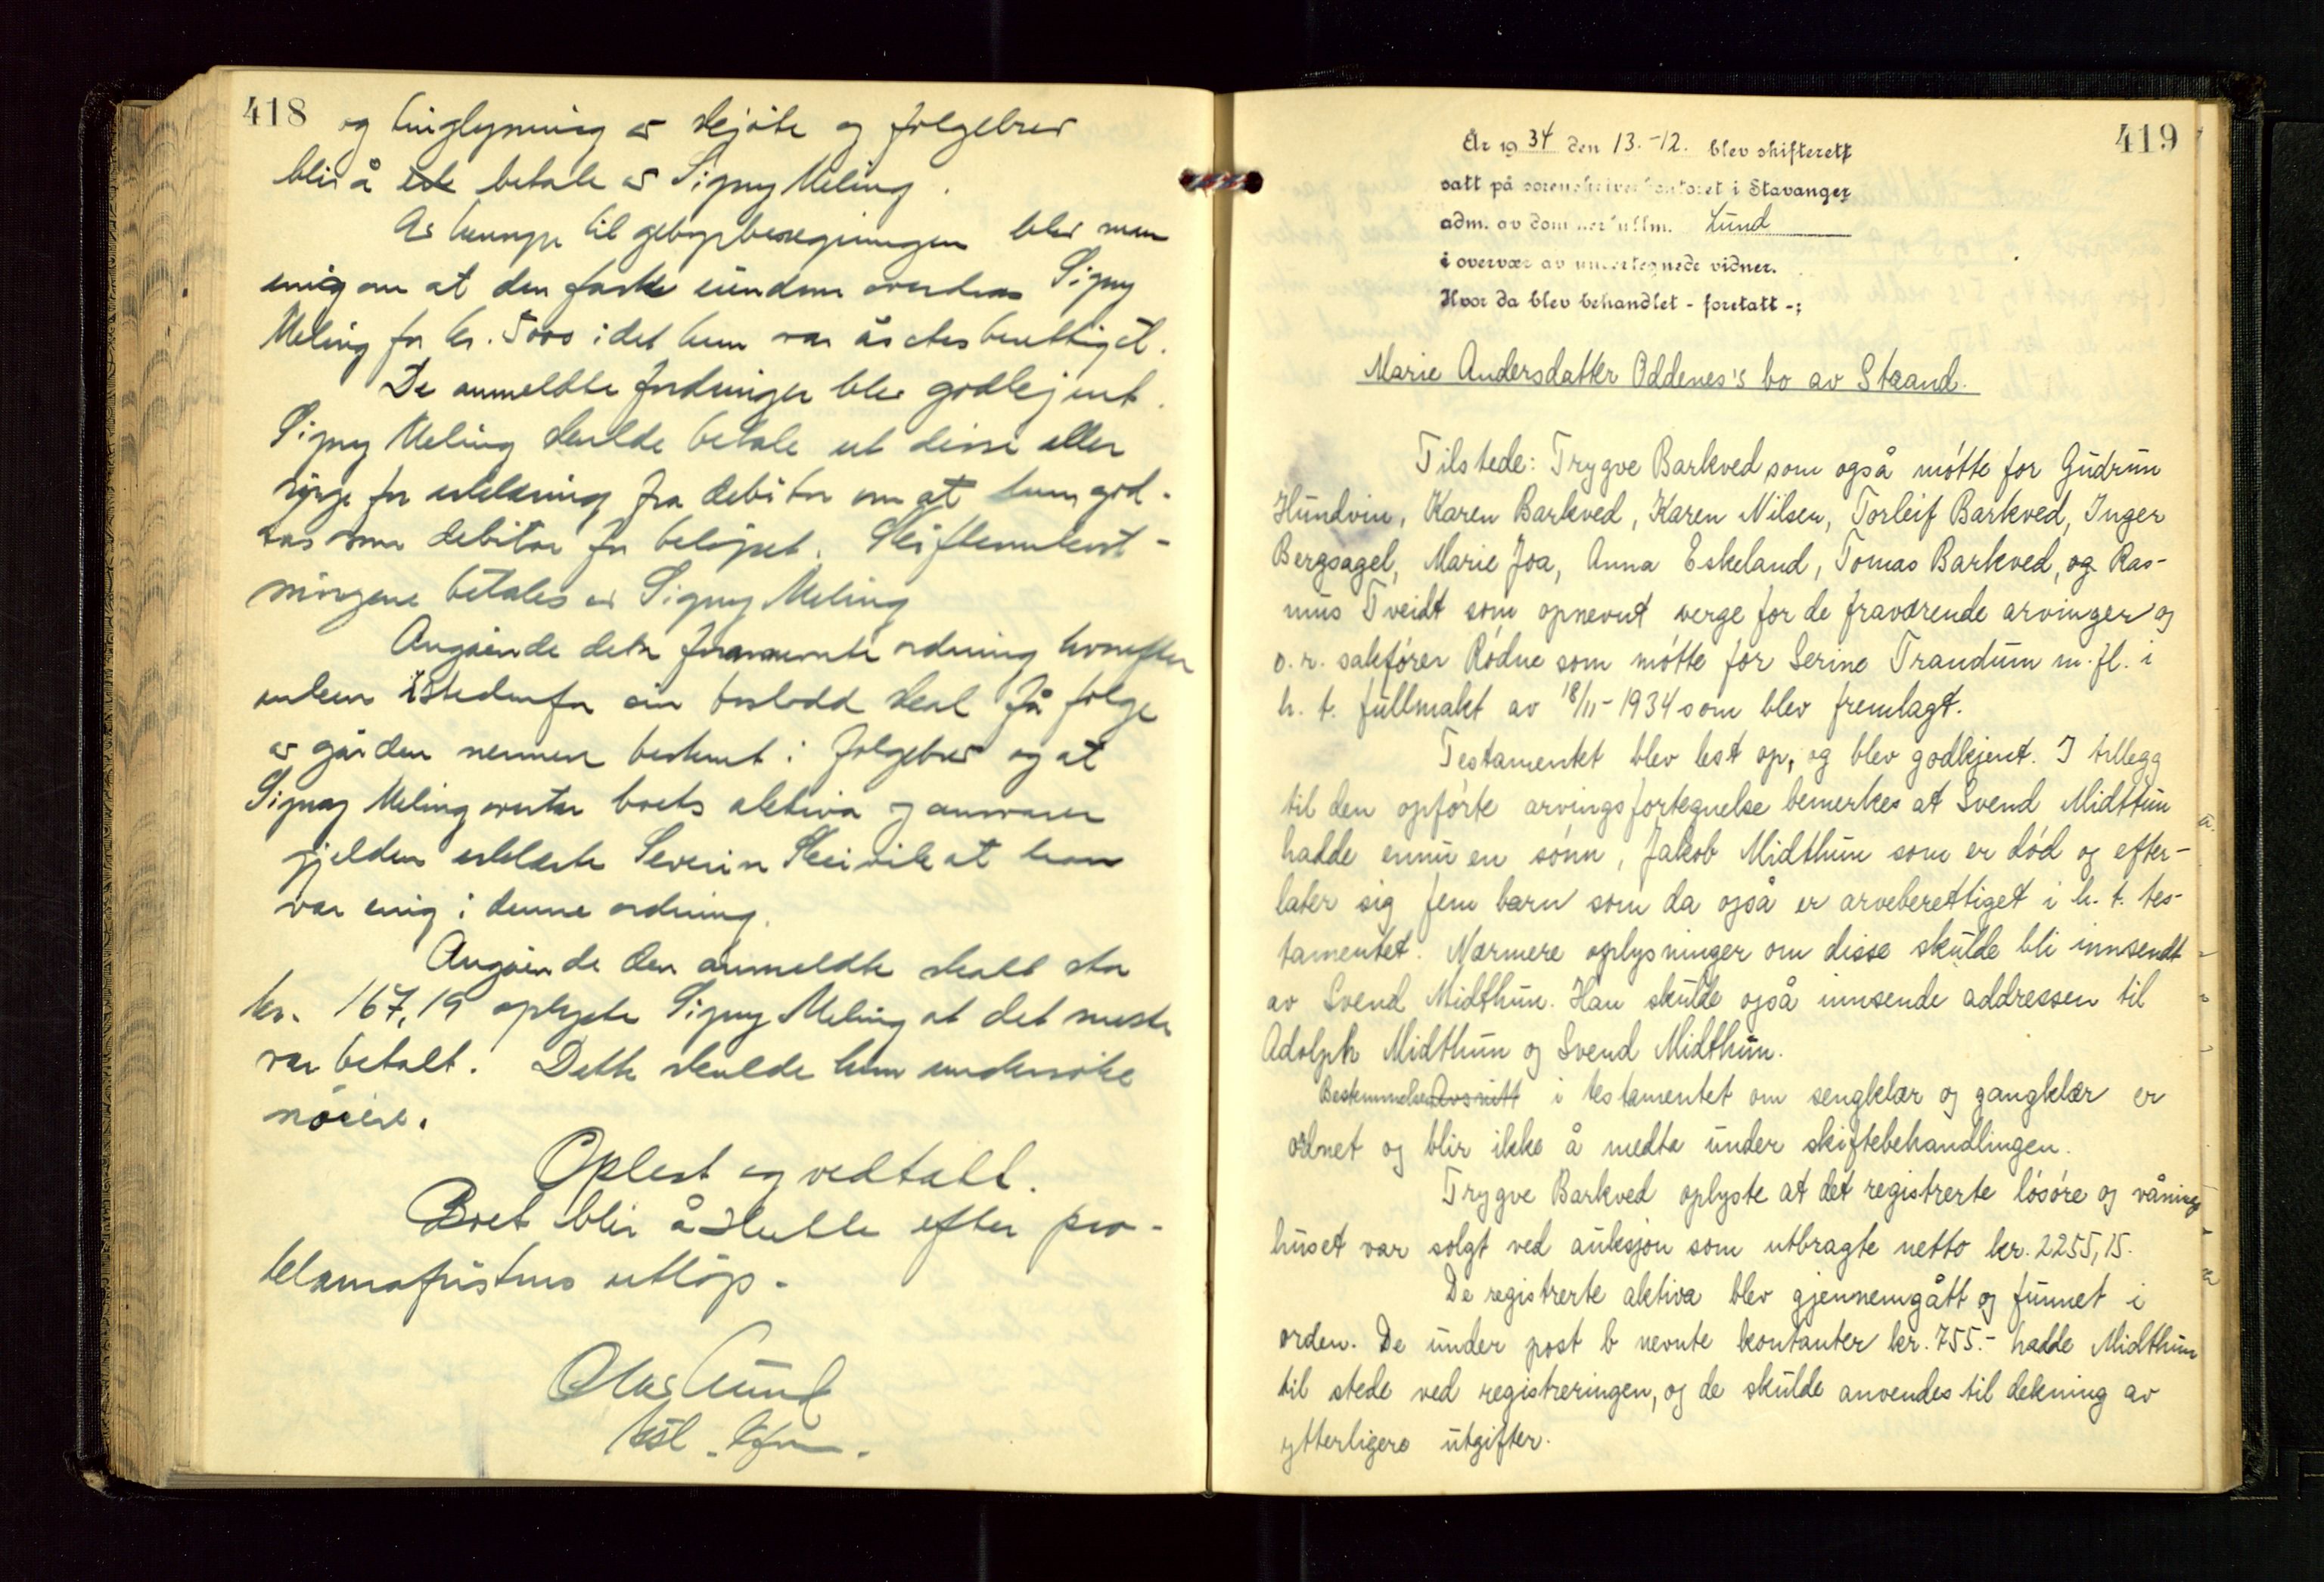 418
og tinglysning av skjøte og følgebrev
blir å betale av Signy Meling.
Av hensyn til gebyrberegningen blev man
enig om at den faste eiendom overdras Signy
Meling for kr. 5000 idet hun var åsetesberettiget.
De anmeldte fordringer blev godkjent.
Signy Meling skulde betale ut disse eller
sørge for erklæring fra debitor om at hun god-
tas som debitor for beløpet. Skifteomkost-
ningene betales av Signy Meling
Angående den forannevnte ordning hvorefter
enken istedenfor sin boslodd skal få følge
av gården nermere bestemt i følgebrev og at
Signy Meling overtar boets aktiva og ansvaret
gjelden erklærte Severin Skeivik at han
var enig i denne ordning.
Angående den anmeldte skatt stor
kr. 167,19 oplyste Signy Meling at det meste
var betalt. Dette skulde hun undersøke
nøiere.
Oplest og vedtatt.
Boet blir å slutte efter pro-
klamafristens utløp.
Olav Lund
kst. dfm.
419
År 1934 den 13.-12. blev skifterett
satt på sorenskriverkontoret i Stavanger
adm. av dommerfullm. Lund
i overvær av undertegnede vidner.
Hvor da blev behandlet - foretatt -:
Marie Andersdatter Oddenes's bo av Strand.
Tilstede: Trygve Barkved som også møtte for Gudrun
Hundvin, Karen Barkved, Karen Nilsen, Torleif Barkved, Inger
Bergsagel, Marie Joa, Anna Eskeland, Tomas Barkved, og Ras-
mus Tveidt som opnevnt verge for de fraværende arvinger og
o.r. sakfører Rödne som møtte for Serine Trandum m.fl. i
h. t. fullmakt av 18/11-1934 som blev fremlagt.
Testamentet blev lest op, og blev godkjent. I tillegg
til den opførte arvingsfortegnelse bemerkes at Svend Midttun
hadde ennu en sønn, Jakob Midthun som er død og efter-
later sig fem barn som da også er arveberettiget i h. t. tes-
tamentet. Nærmere oplysninger om disse skulde bli innsendt
av Svend Midthun. Han skulde også innsende addressen til
Adolph Midthun og Svend Midthun.
Bestemmelse Avsnitt i testamentet om sengklær og gangklær er
ordnet og blir ikke å medta under skiftebehandlingen.
Trygve Barkved oplyste at det registrerte løsøre og vånings
huset var solgt ved auksjon som utbragte netto kr. 2255,15.
De registrerte aktiva blev gjennemgått og funnet i
orden. De under post b nevnte kontanter kr. 755.- hadde Midthun
til stede ved registreringen, og de skulde anvendes til dekning av
ytterligere utgifter.